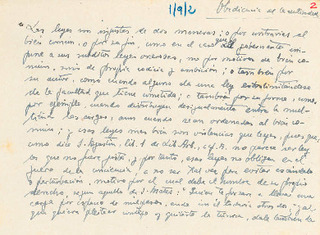 1/9/2
Obediencia a la autoridad
2
"Las leyes son injustas de dos maneras: o por contrarias al
bien común, o por su fin, como en el caso que el gobernante im-
pone a sus súbditos leyes onerosas, no por motivos de bien co-
mún, sino de propia codicia y ambición; o también por
su autor, como cuando alguno da una ley extralimitándose
de la facultad que tiene cometida; o también por su forma, como,
por ejemplo, cuando distribuyen desigualmente entre la mul-
titud las cargas, aun cuando sean ordenadas al bien co-
mún; y esas leyes más bien son violencias que leyes, pues que,
como dice S. Agustín, lib. 1 de Lib. Arb., cap. 5, no parece ser ley
la que no fuere justa; y por tanto, esas leyes no obligan en el
fuero de la conciencia, a no ser tal vez para evitar escándalo
o perturbación, motivo por el cual debe el hombre de su propio
derecho, según aquello de S. Mateo: "Quien te forzare a llevar una
carga por espacio de mil pasos, anda con él todavía otros dos; y al
que quiera pleitear contigo y quitarte la túnica, dale también la